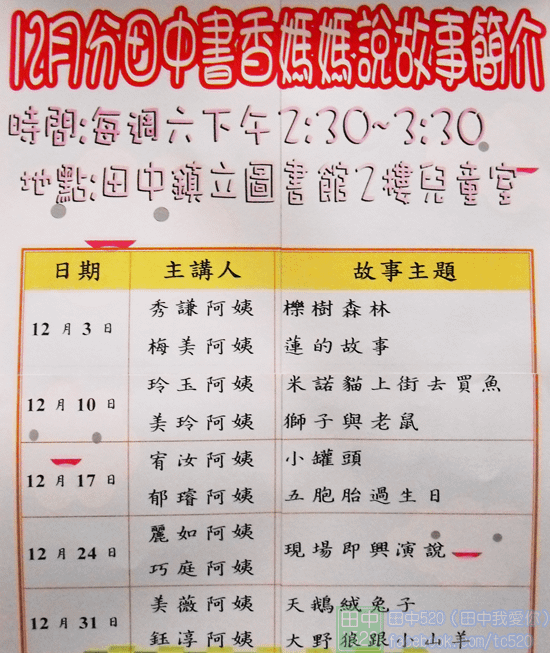 12月分田中書香媽媽說故事簡介
時間:每週六下午2:30~3:30
地點:田中鎮立圖書館2樓兒童室
日期 主講人 故事主題
12月3日
秀謙阿姨 櫟樹森林
梅美阿姨 蓮的故事
12月10日
玲玉阿姨 米諾貓上街去買魚
美玲阿姨 獅子與老鼠
12月17日
宥汝阿姨 小罐頭
郁璿阿姨 五胞胎過生日
12月24日
麗如阿姨
巧庭阿姨
現場即興演說
12月31日
美薇阿姨 天鵝絨兔子
鈺淳阿姨 大野狼跟小山羊
田中520
田中520（田中我愛你）
facebook.com/tc520